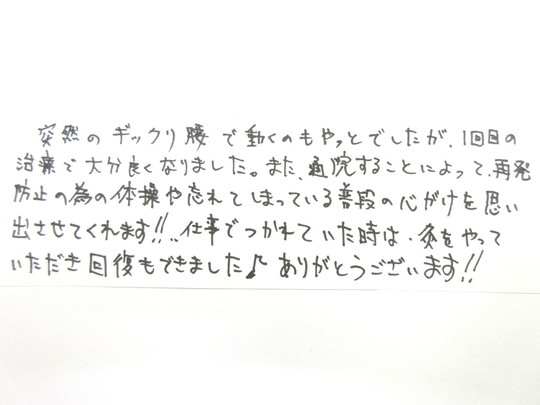 突然のギックリ腰で動くのもやっとでしたが、1回目の
治療で大分良くなりました。また、通院することによって、再発
防止の為の体操や忘れてしまっている普段の心がけを思い
出させてくれます!!、、仕事でつかれていた時は、灸をやって
いただき回復もできました♪ ありがとうございます!!